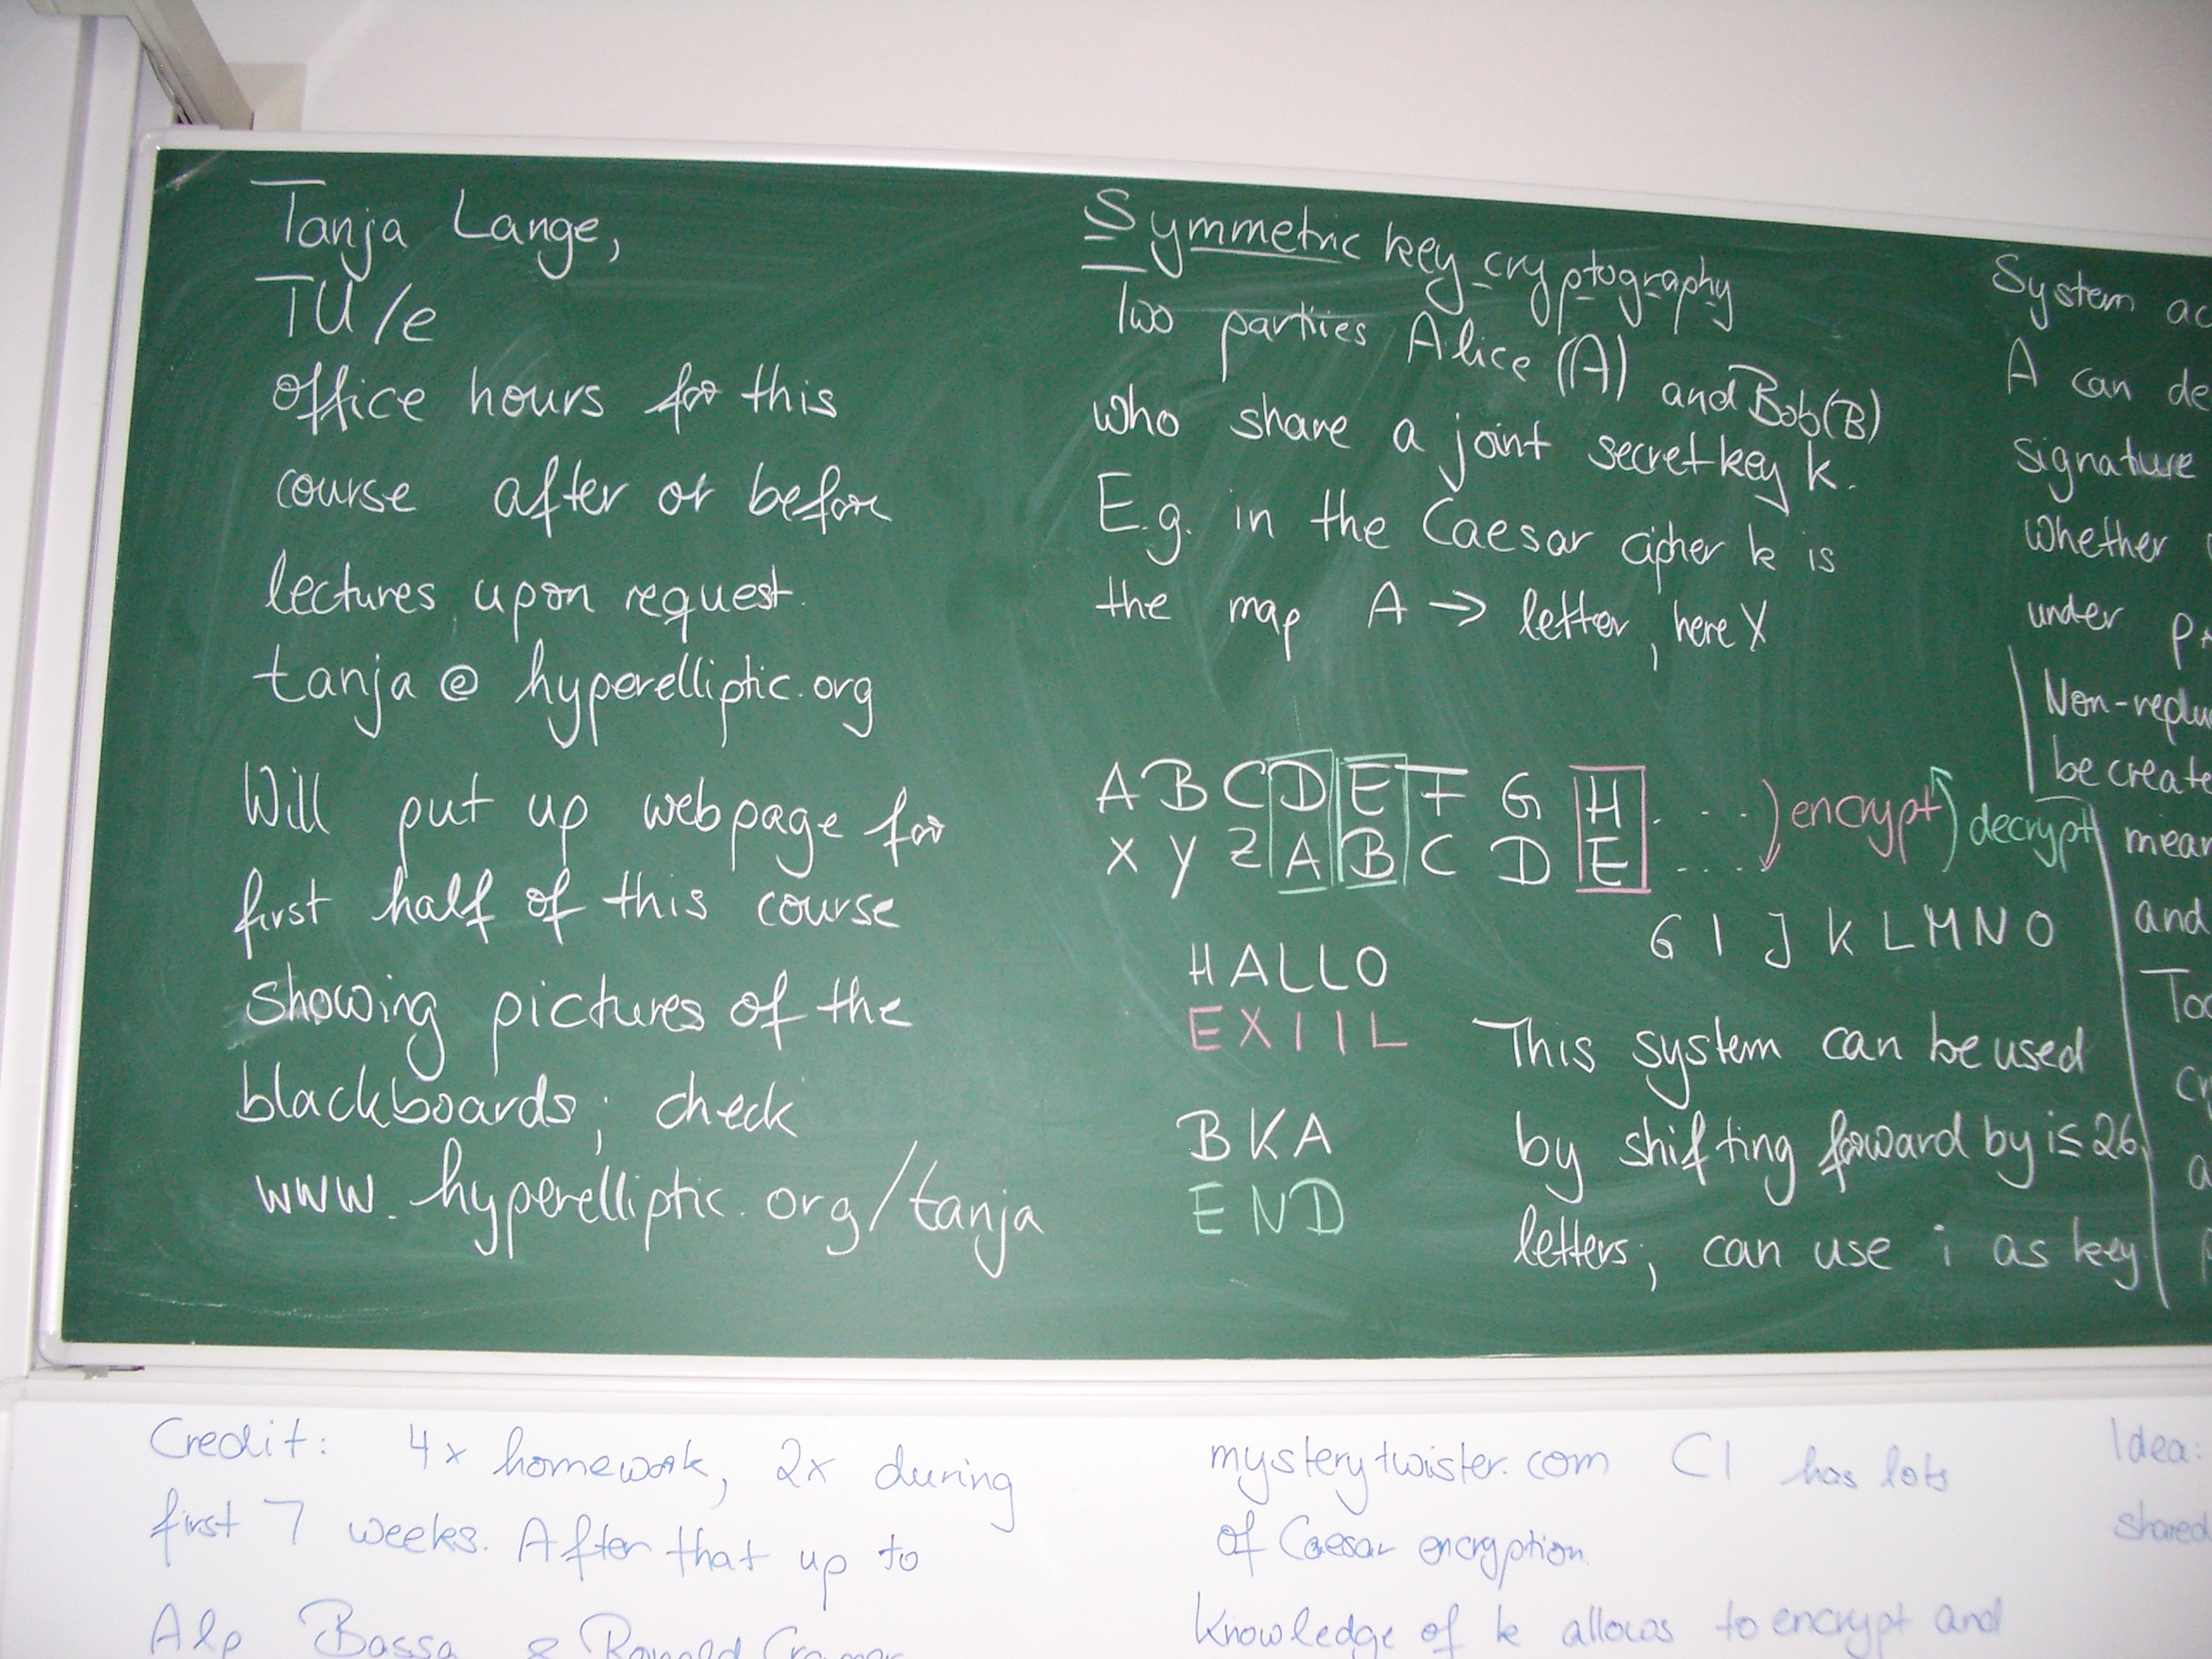 Tanja Lange,
TU/e
office hours for this
course after or before
lectures upon request.
tanja@hyperelliptic.org
Will put up webpage for
first half of this course
showing pictures of the
blackboards; check
www.hyperelliptic.org/tanja
Symmetric key cryptography
Two parties Alice (A) and Bob (B)
who share a joint secret key k.
E.g. in the Caesar cipher k is
the map A → letter, here X
A B C D E F G H . . . . ) encrypt ) decrypt
X Y Z A B C D E . . . .
G I J K L M N O
HALLO
EXIIL
BKA
END
This system can be used
by shifting forward by i≤26
letters; can use i as key
System
A can
signature
whether
under
be
and
Credit: 4x homework, 2x during
first 7 weeks. After that up to
Alp Bassa & Ronald Cramer
mysterytwister.com C1 has lots
of Caesar encryption.
Knowledge of k allows to encrypt and
Idea:
shared